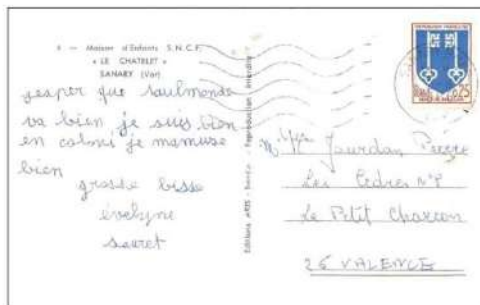 6 — Maison d'Enfants S.N.C.F.
« LE CHATELET »
SANARY (Var)
jesper que taulmonde
va bien je suis bien
en coloni je mamuse
bien
grosse bisse
évelyne
sauret
Editions ARIS - Bandol - Reproduction interdite
REPUBLIQUE FRANÇAISE
0,25
Jourdan Pierre
Les Cèdres N°
Le Petit Charran
26 VALENCE